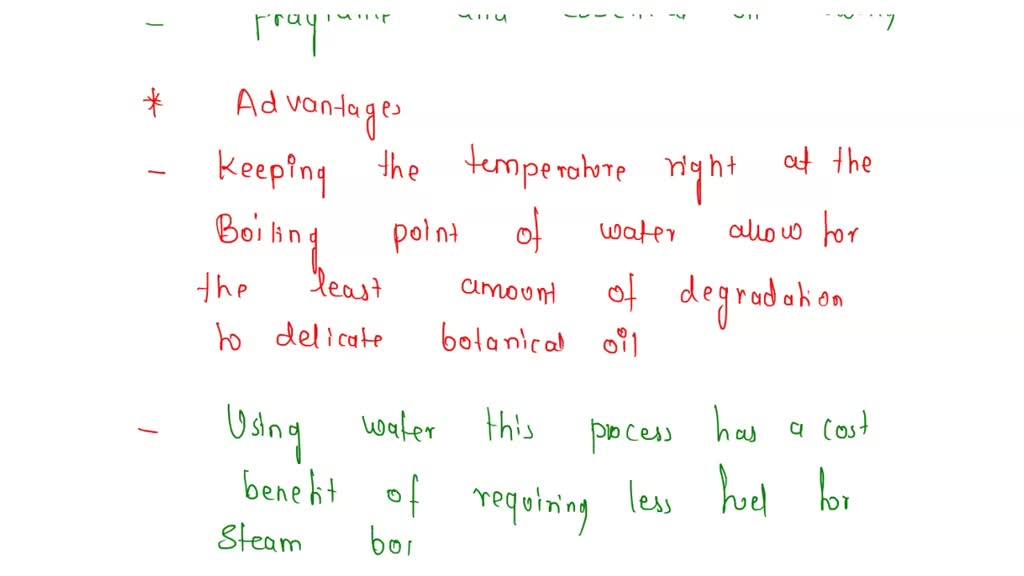 - and
* Advantages
- Keeping the temperature right at the
Boiling point of water allow for
the least amount of degradation
to delicate botanical oil
- Using water this process has a cost
benefit of requiring less fuel for
Steam boi